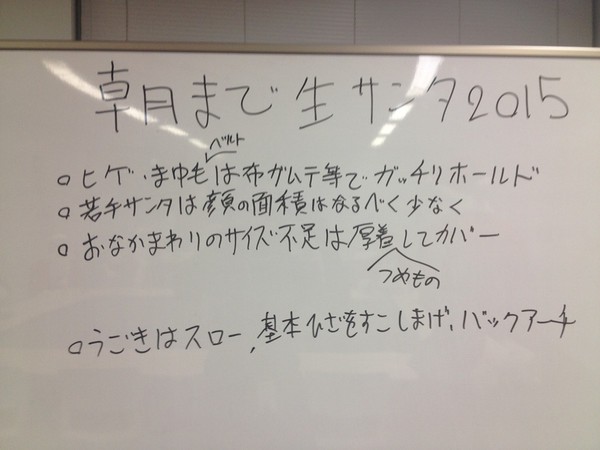 朝まで生サンタ2015
ベルト
○ヒゲ、まゆ毛は布ガムテ等でガッチリホールド
○若手サンタは顔の面積はなるべく少なく
○おなかまわりのサイズ不足は厚着してカバー
つめもの
○うごきはスロー、基本ひざをすこしまげ、バックアーチ